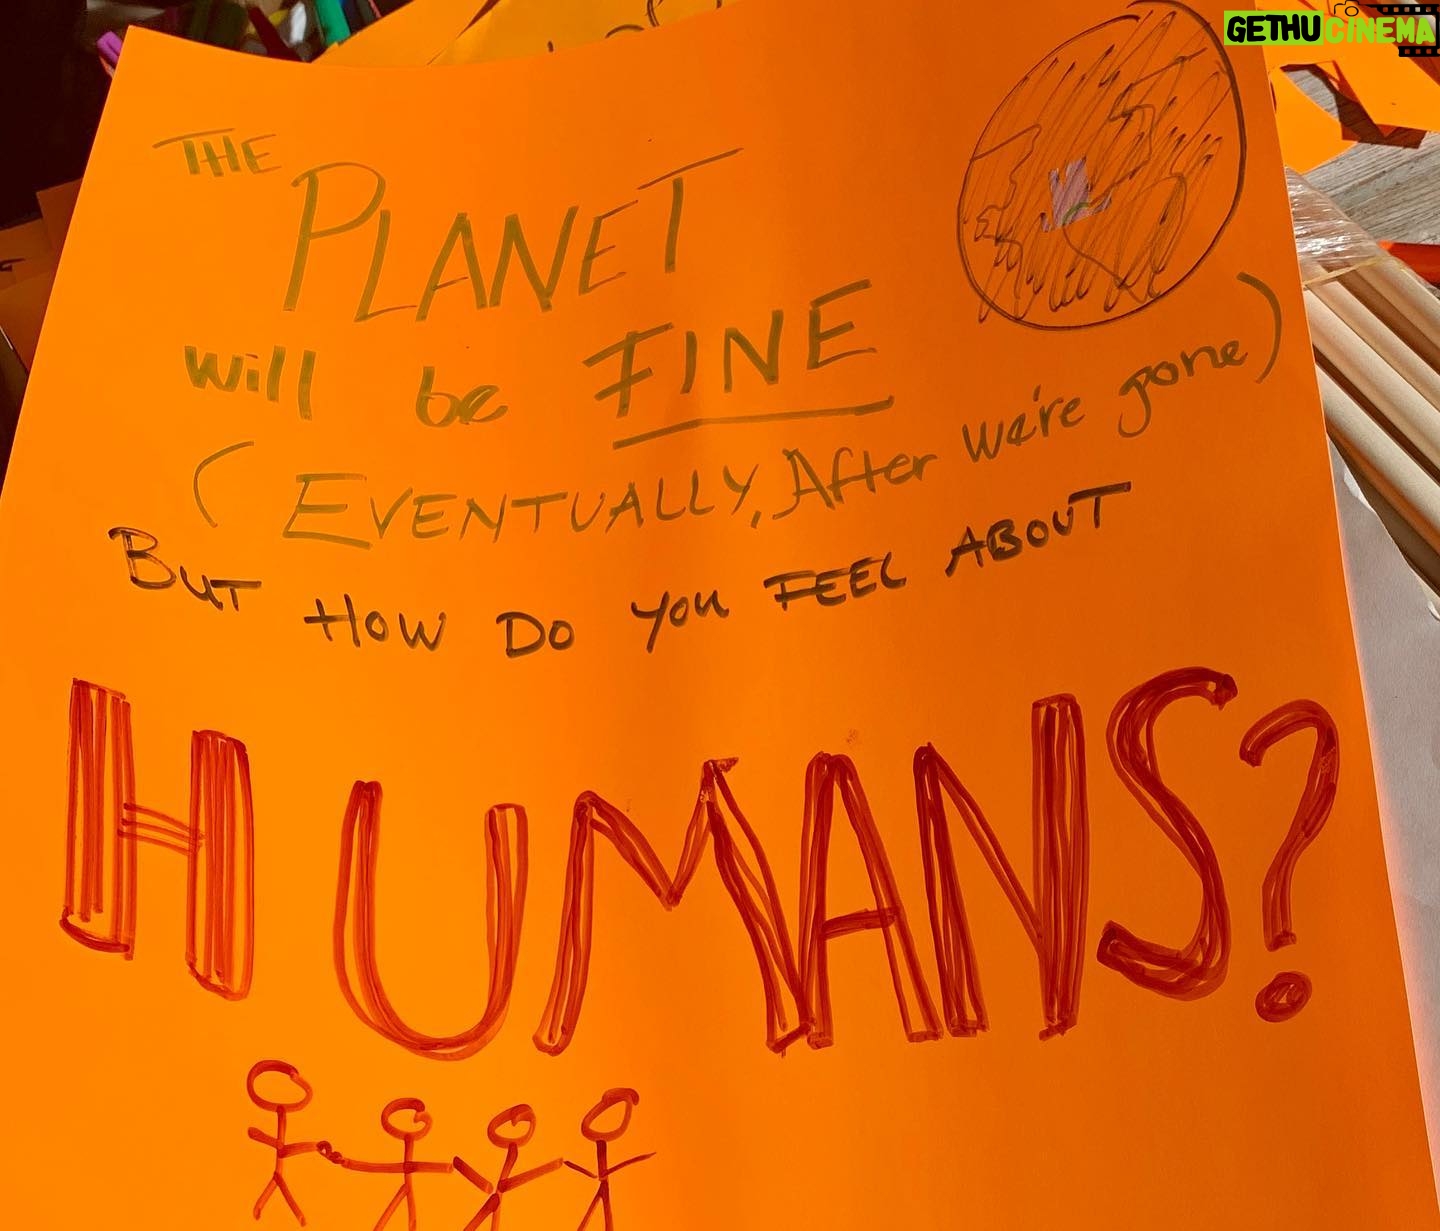 GETHUCINEMA
THE
PLANET
will be FINE
(EVENTUALLY, After we're gone)
BUT HOW DO YOU FEEL ABOUT
HUMANS?